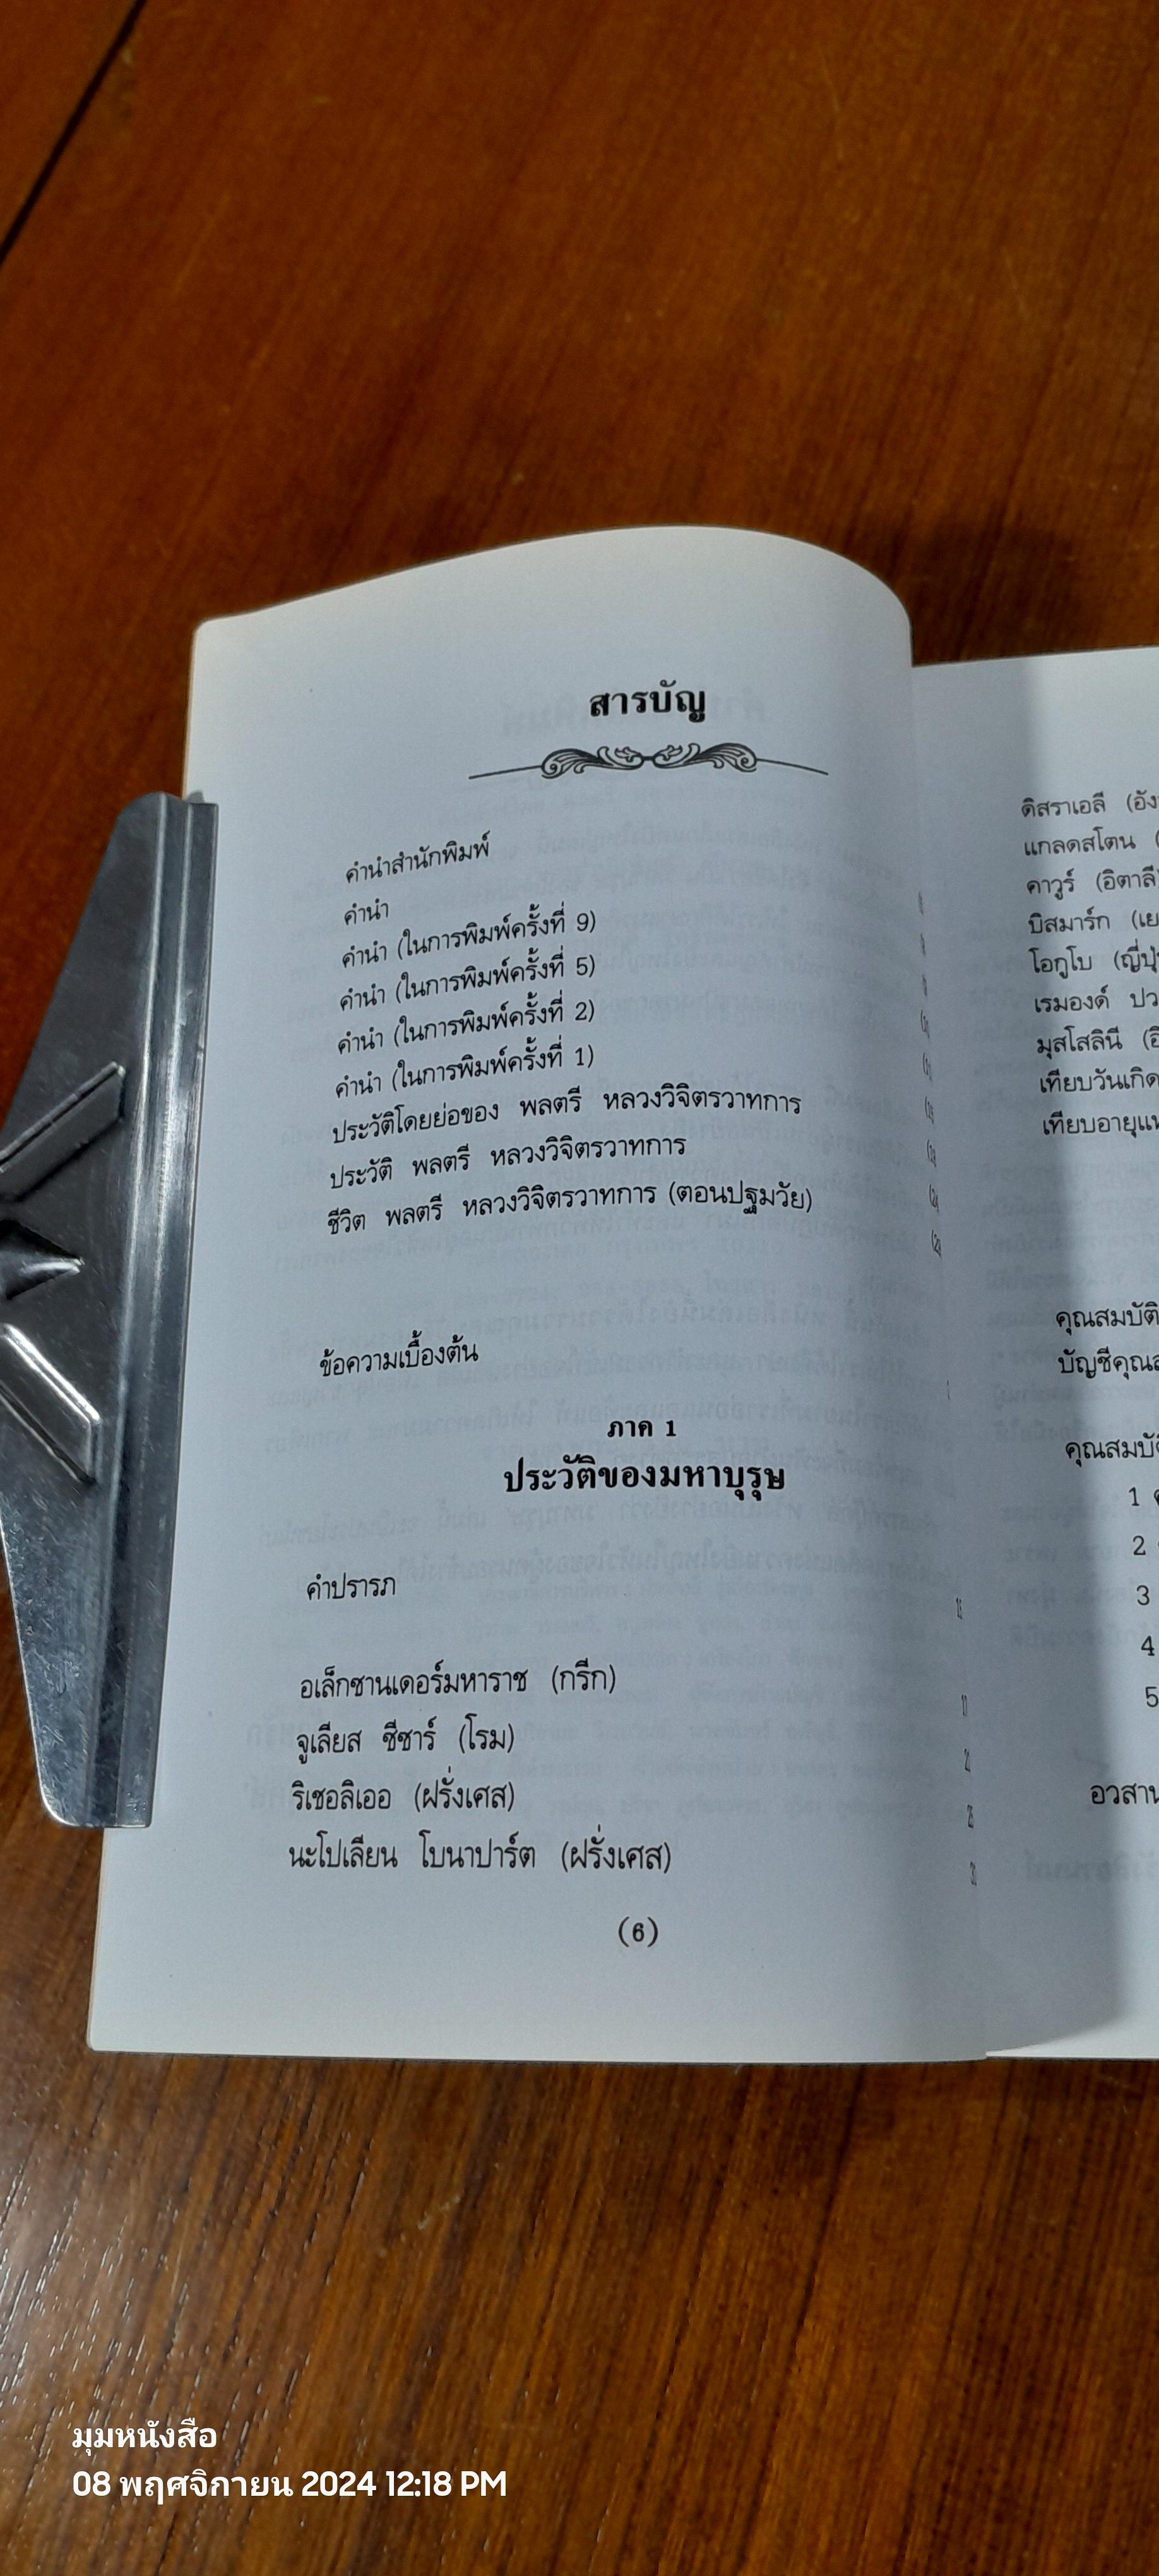 สารบัญ
คำนำสำนักพิมพ์
คำนำ
คำนำ (ในการพิมพ์ครั้งที่ 9)
คำนำ (ในการพิมพ์ครั้งที่ 5)
คำนำ (ในการพิมพ์ครั้งที่ 2)
คำนำ (ในการพิมพ์ครั้งที่ 1)
ประวัติโดยย่อของ พลตรี หลวงวิจิตรวาทการ
ประวัติ พลตรี หลวงวิจิตรวาทการ
ชีวิต พลตรี หลวงวิจิตรวาทการ (ตอนปฐมวัย)
ข้อความเบื้องต้น
ภาค 1
ประวัติของมหาบุรุษ
คำปรารภ
อเล็กซานเดอร์มหาราช (กรีก)
จูเลียส ซีซาร์ (โรม)
ริเชอลิเออ (ฝรั่งเศส)
นะโปเลียน โบนาปาร์ต (ฝรั่งเศส)
(6)
ดิสราเอลี
แกลดสโตน
คาวูร์ (อิตาลี)
บิสมาร์ก
โอกูโบ
เรมองด์
มุสโสลินี
เทียบวันเกิด
เทียบอายุ
คุณสมบัติ
บัญชี
คุณสมบัติ
1
2
3
4
5
อวสาน
มุมหนังสือ
08 พฤศจิกายน 2024 12:18 PM